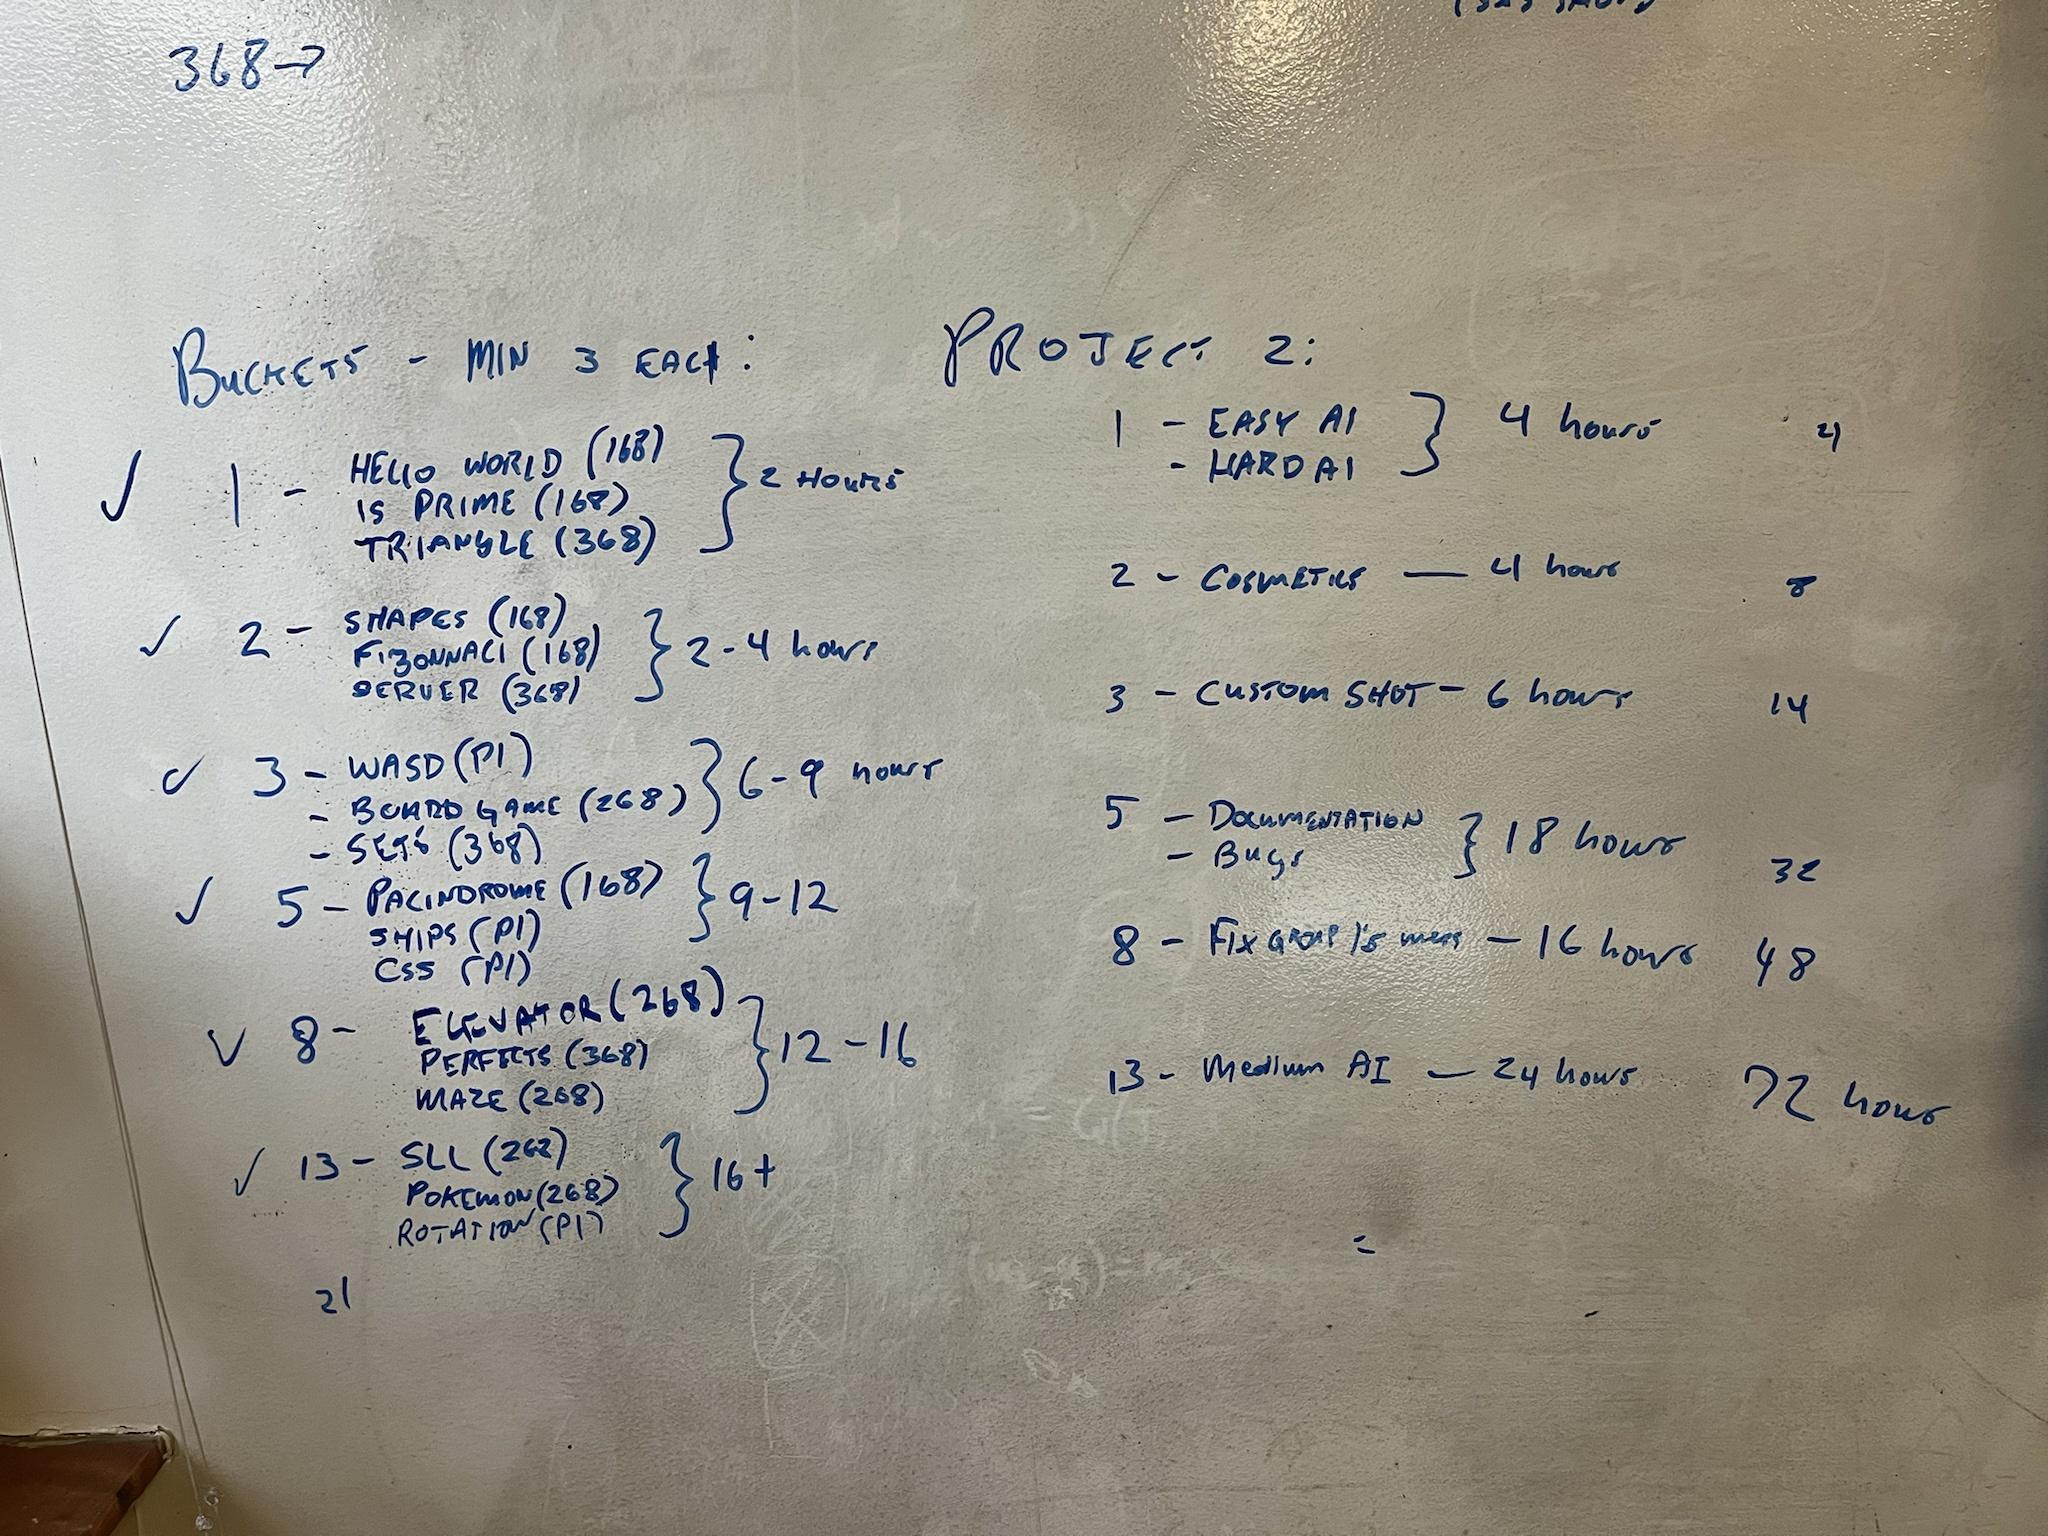 368→
BUCKETS - MIN 3 EACH:
✓ 1 - HELLO WORLD (168)
IS PRIME (168)
TRIANGLE (368)
} 2 HOURS
✓ 2 - SHAPES (168)
FIBONNACI (168)
SERVER (368)
} 2-4 hours
✓ 3 - WASD (P1)
- BOARD GAME (268)
- SETS (368)
} 6-9 hours
✓ 5 - PALINDROME (168)
SHIPS (P1)
CSS (P1)
} 9-12
✓ 8 - ELEVATOR (268)
PERFECTS (368)
MAZE (268)
} 12-16
✓ 13 - SLL (268)
POKEMON (268)
ROTATION (P1)
} 16+
21
PROJECT 2:
1 - EASY AI
- HARD AI
} 4 hours 4
2 - COSMETICS — 4 hours 8
3 - CUSTOM SHOT - 6 hours 14
5 - DOCUMENTATION
- Bugs
} 18 hours 32
8 - FIX GROUP 1's mess - 16 hours 48
13 - Medium AI - 24 hours 72 hours
=